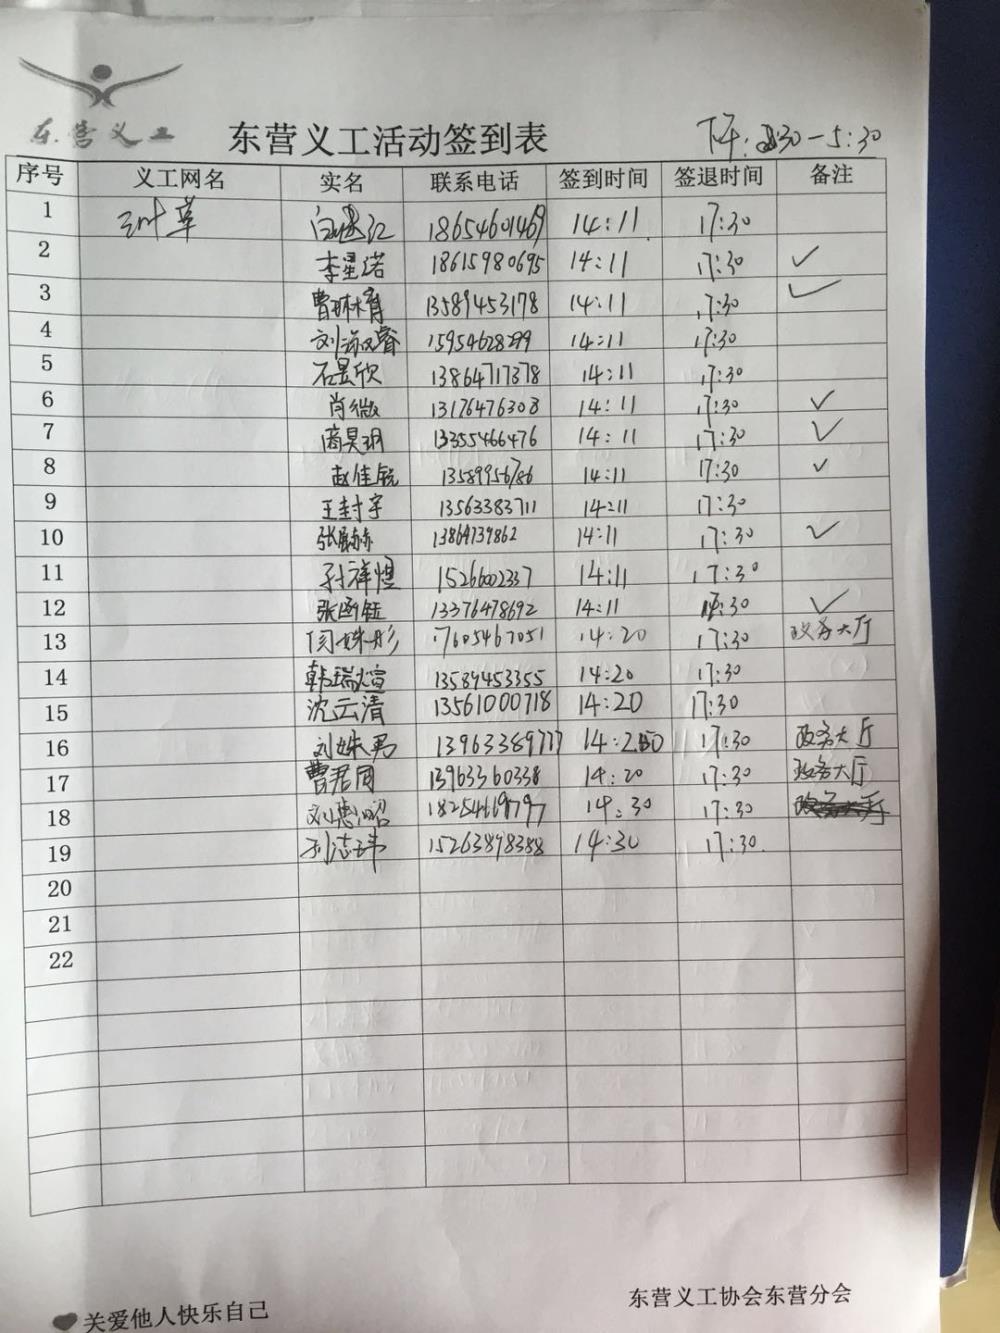 东营义工
东营义工活动签到表 下午: 2:30-5:30
序号 义工网名 实名 联系电话 签到时间 签退时间 备注
1 三叶草 18654601469 14:11 17:30
2 李星诺 18615980695 14:11 17:30 ✓
3 曹琳育 13589453178 14:11 17:30 ✓
4 15954628299 14:11 17:30
5 石昱欣 13864717378 14:11 17:30
6 肖微 13176476308 14:11 17:30 ✓
7 蔺昊玥 13355466476 14:11 17:30 ✓
8 赵佳锐 13589956786 14:11 17:30 ✓
9 王封宇 13563383711 14:11 17:30
10 13864739862 14:11 17:30 ✓
11 孙祥煜 15266002337 14:11 17:30
12 张函钰 13376478692 14:11 17:30 ✓
13 闫姝彤 17605467051 14:20 17:30 政务大厅
14 韩瑞煊 13589453355 14:20 17:30
15 沈云清 13561000718 14:20 17:30
16 刘姝君 13963389717 17:30 政务大厅
17 曹君同 13963360338 14:20 17:30 政务大厅
18 刘慧昭 14:30 17:30
19 刘志玮 15263898388 14:30 17:30
20
21
22
关爱他人快乐自己 东营义工协会东营分会